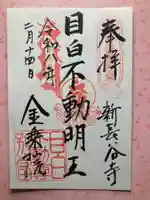 奉拝
新長谷寺
目白不動明王
令和八年
二月十四日
金乗院